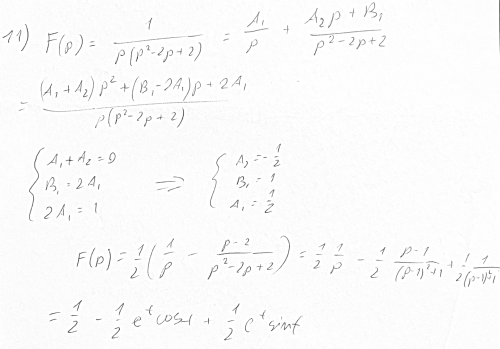 11) F(p) = 1 / (p(p²-2p+2)) = A₁/p + (A₂p + B₁)/(p²-2p+2)
= ((A₁ + A₂)p² + (B₁ - 2A₁)p + 2A₁) / (p(p²-2p+2))
{ A₁ + A₂ = 0 ⇒ { A₂ = -1/2
B₁ = 2A₁ B₁ = 1
2A₁ = 1 A₁ = 1/2
F(p) = 1/2 (1/p - (p-2)/(p²-2p+2)) = 1/2 1/p - 1/2 (p-1)/((p-1)²+1) + 1/2 1/((p-1)²+1)
= 1/2 - 1/2 e^t cost + 1/2 e^t sint